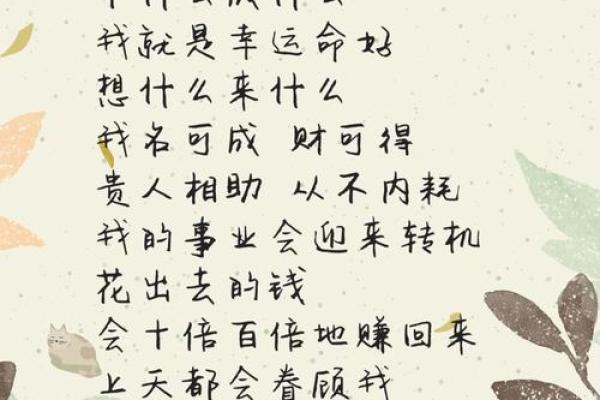 什么成什么
我就是幸运命好
想什么来什么
我名可成 财可得
贵人相助 从不内耗
我的事业会迎来转机
花出去的钱
会十倍百倍地赚回来
上天都会眷顾我